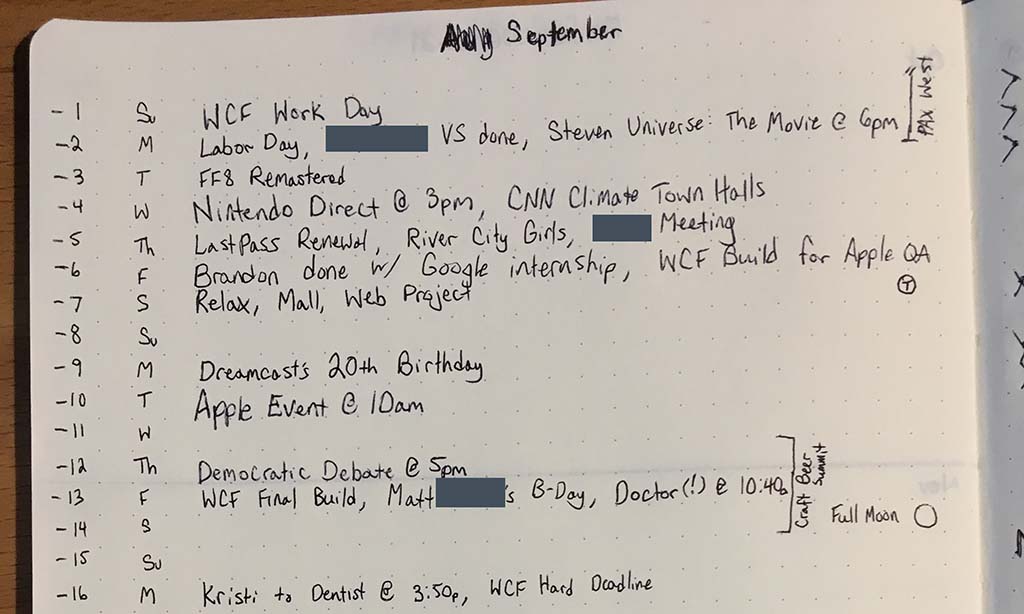 September
-1 Su WCF Work Day
-2 M Labor Day, VS done, Steven Universe: The Movie @ 6pm
PAX West
-3 T FF8 Remastered
-4 W Nintendo Direct @ 3pm, CNN Climate Town Halls
-5 Th LastPass Renewal, River City Girls, Meeting
-6 F Brandon done w/ Google internship, WCF Build for Apple QA
T
-7 S Relax, Mall, Web Project
-8 Su
-9 M Dreamcast's 20th Birthday
-10 T Apple Event @ 10am
-11 W
-12 Th Democratic Debate @ 5pm
-13 F WCF Final Build, Matt 's B-Day, Doctor(!) @ 10:40a
Craft Beer
Summit
Full Moon
-14 S
-15 Su
-16 M Kristi to Dentist @ 3:50p, WCF Hard Deadline